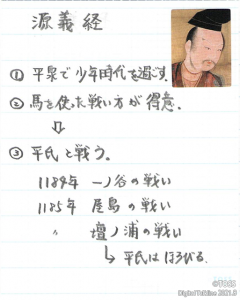 源義経
① 平泉で少年時代を過ごす。
② 馬を使った戦い方が得意。
⇩
③ 平氏と戦う。
1184年 一ノ谷の戦い
1185年 屋島の戦い
〃 壇ノ浦の戦い
↳ 平氏はほろびる。
©TOSS
DigitalTalkLine 2021.8